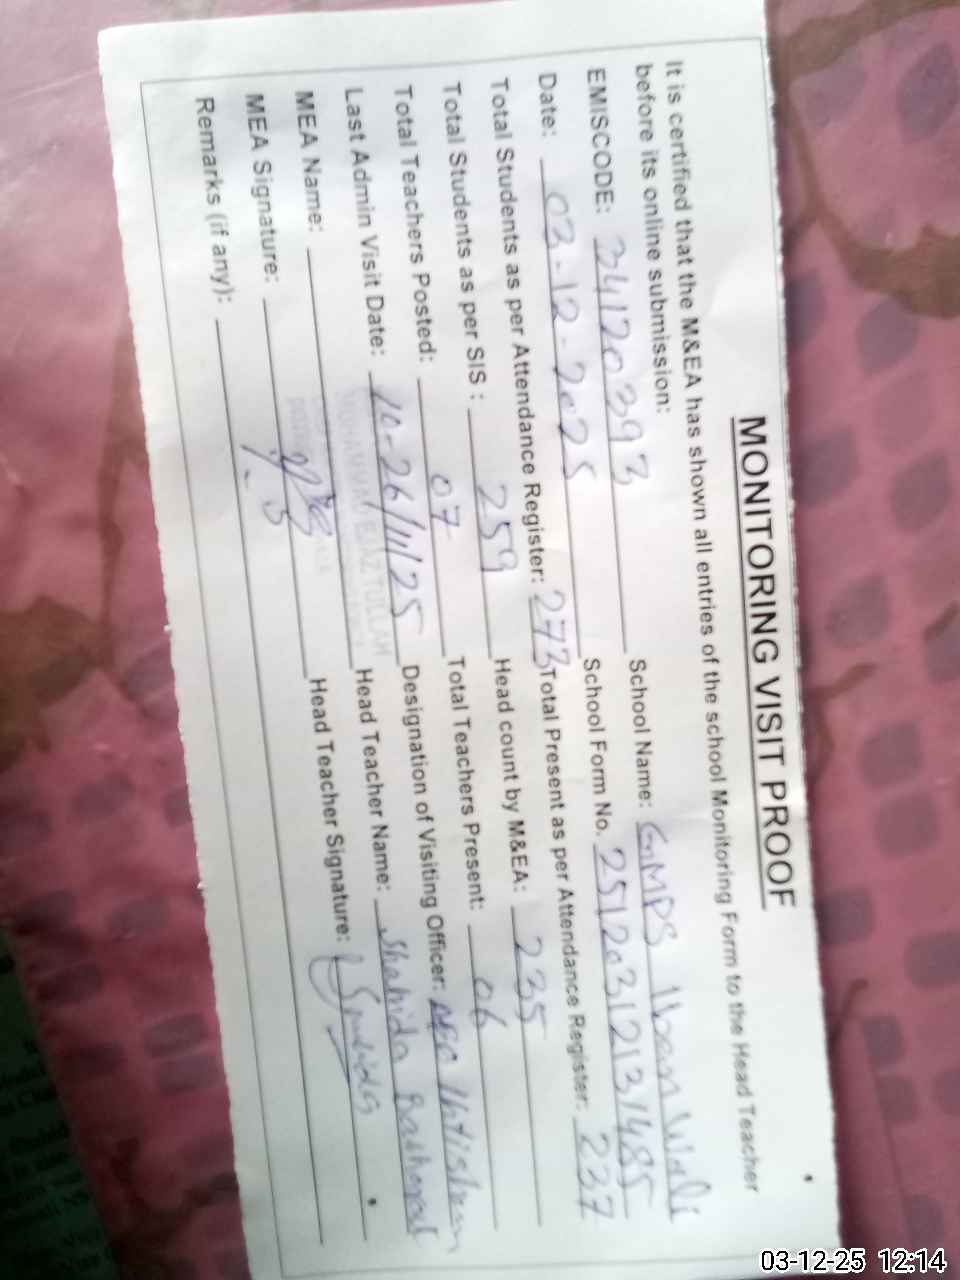 MONITORING VISIT PROOF
It is certified that the M&EA has shown all entries of the school Monitoring Form to the Head Teacher
before its online submission:
EMISCODE: 34120393 School Name: GMPS
Date: 03-12-2025 School Form No. 25120312131485
Total Students as per Attendance Register: 273 Total Present as per Attendance Register: 237
Total Students as per SIS : 259 Head count by M&EA: 235
Total Teachers Posted: 07 Total Teachers Present: 06
Last Admin Visit Date: 26/11/25 Designation of Visiting Officer:
MEA Name: Head Teacher Name: Shahida
MEA Signature: Head Teacher Signature:
Remarks (if any):
03-12-25 12:14